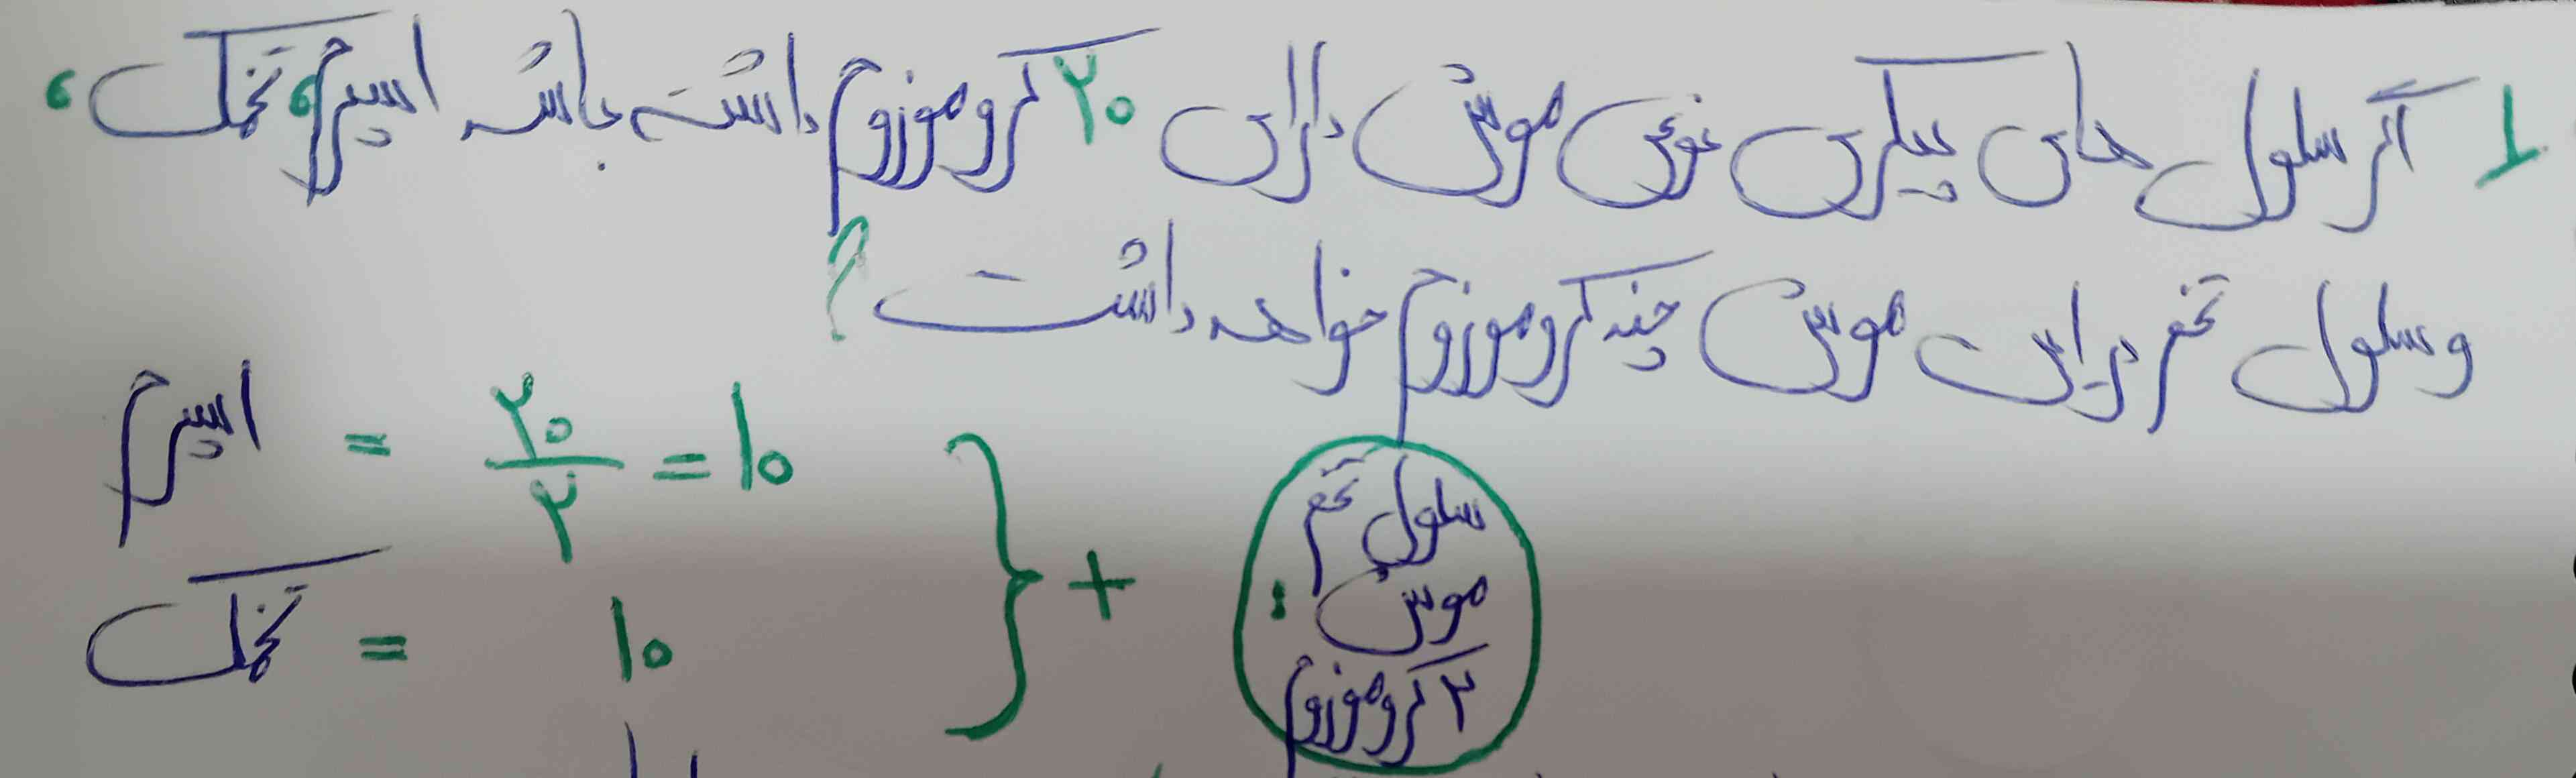 ۱ اگر سلول های پیکری نوعی موش دارای ۲۰ کروموزوم داشته باشد اسپرم، تخمک،
و سلول تخم برای موش چند کروموزوم خواهد داشت؟
اسپرم = ۲۰/۲ = ۱۰
تخمک = ۱۰
} +
سلول تخم
موش :
۲ کروموزوم